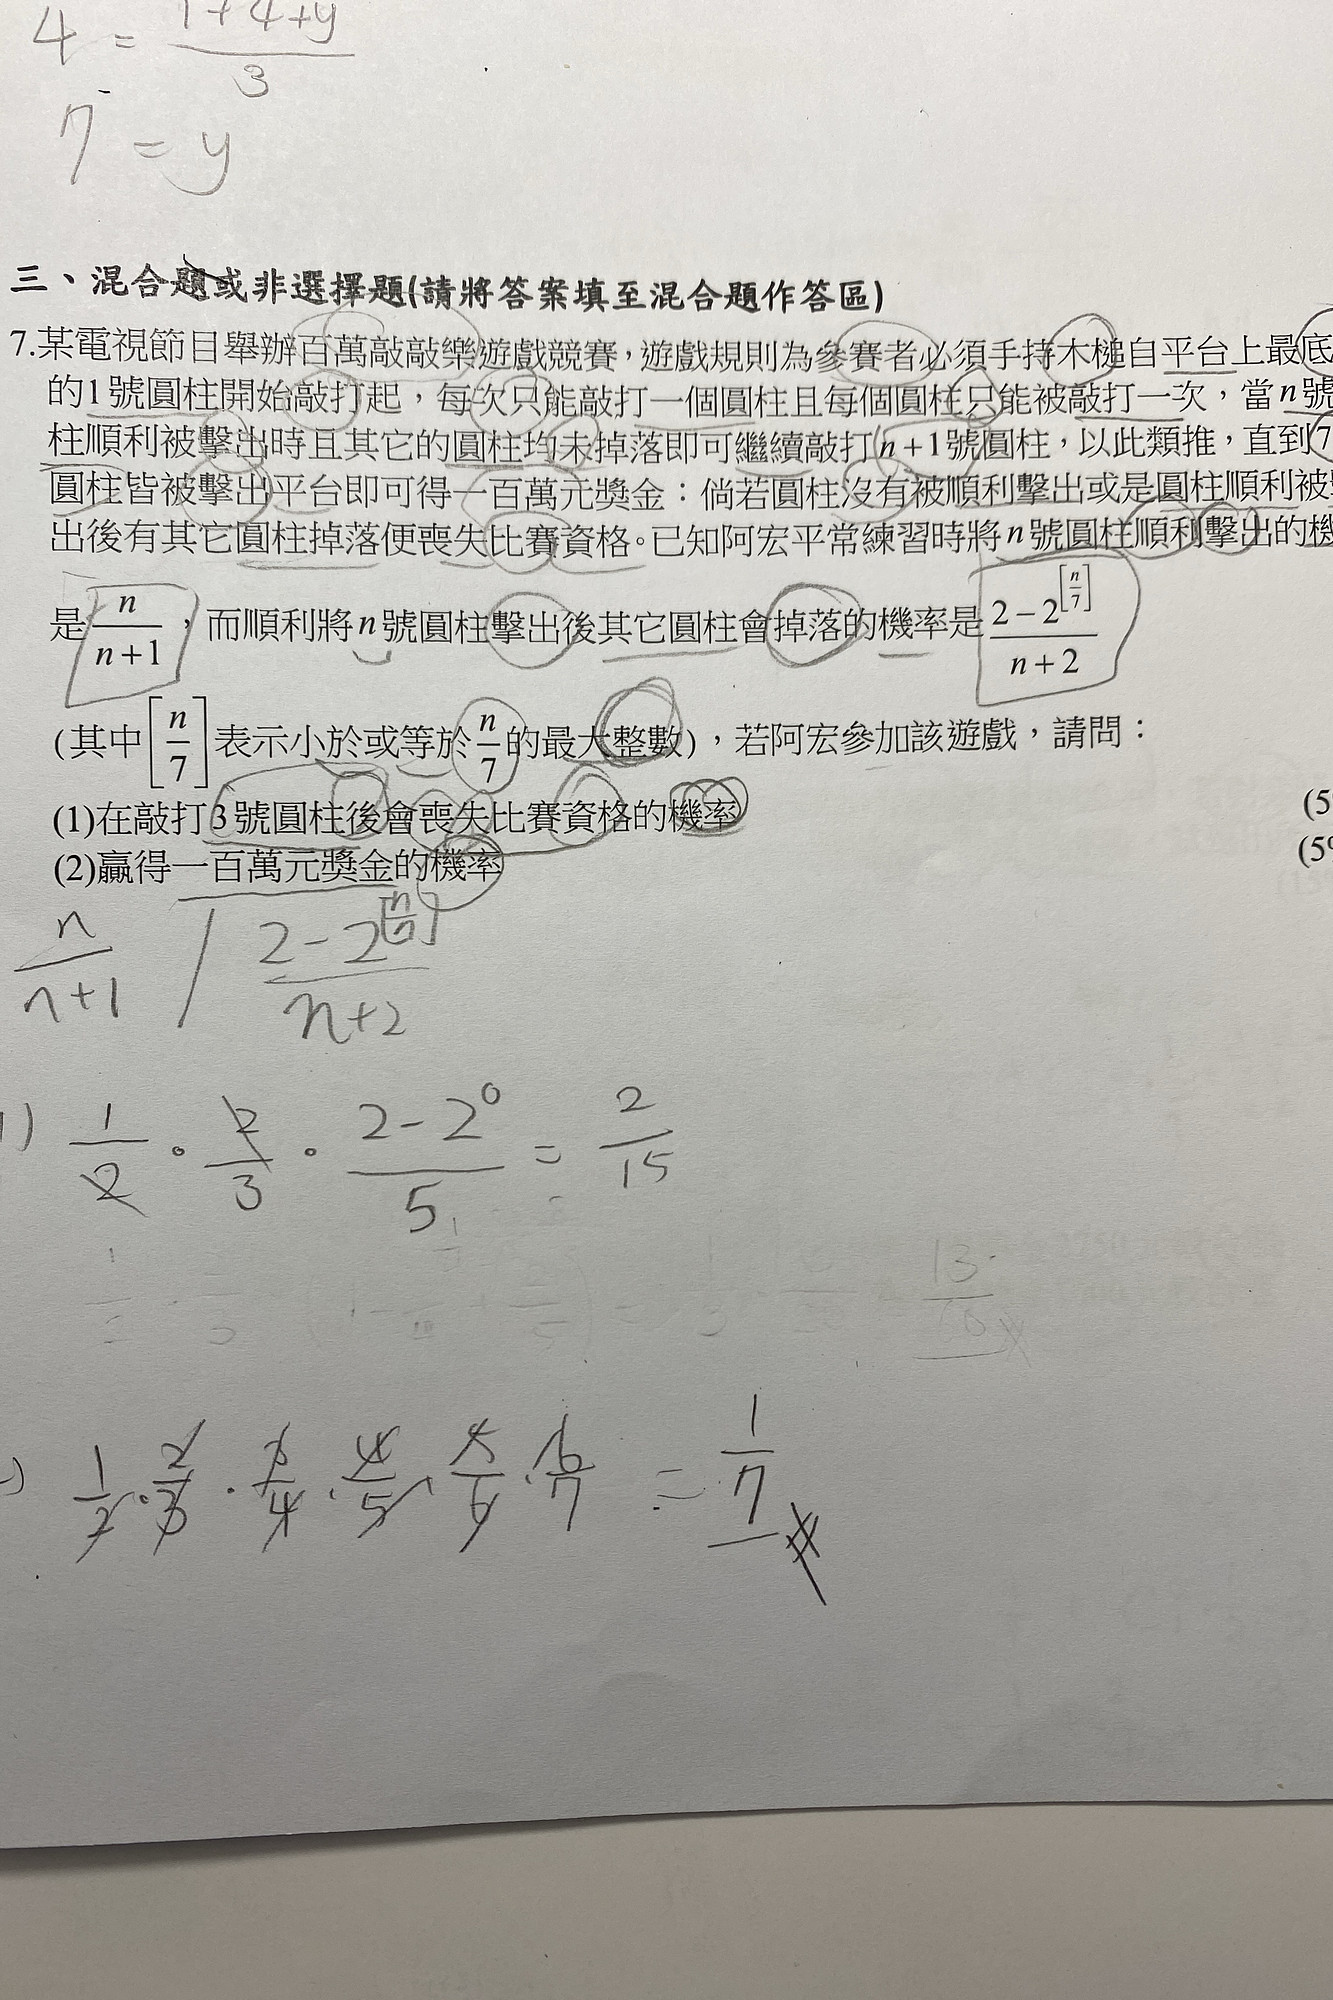 4 = 1+4+y / 3
7 = y
三、混合題或非選擇題(請將答案填至混合題作答區)
7.某電視節目舉辦百萬敲敲樂遊戲競賽，遊戲規則為參賽者必須手持木槌自平台上最底
的1號圓柱開始敲打起，每次只能敲打一個圓柱且每個圓柱只能被敲打一次，當n號
柱順利被擊出時且其它的圓柱均未掉落即可繼續敲打n+1號圓柱，以此類推，直到7
圓柱皆被擊出平台即可得一百萬元獎金：倘若圓柱沒有被順利擊出或是圓柱順利被
出後有其它圓柱掉落便喪失比賽資格。已知阿宏平常練習時將n號圓柱順利擊出的機
是 n/(n+1)，而順利將n號圓柱擊出後其它圓柱會掉落的機率是 (2-2^[n/7])/(n+2)
(其中[n/7]表示小於或等於n/7的最大整數)，若阿宏參加該遊戲，請問：
(1)在敲打3號圓柱後會喪失比賽資格的機率 (5
(2)贏得一百萬元獎金的機率 (5
n/(n+1) / (2-2^[n/7])/(n+2)
1) 1/2 · 2/3 · (2-2^0)/5 = 2/15
1/2 · 2/3 · 3/4 · 4/5 · 5/6 · 6/7 = 1/7